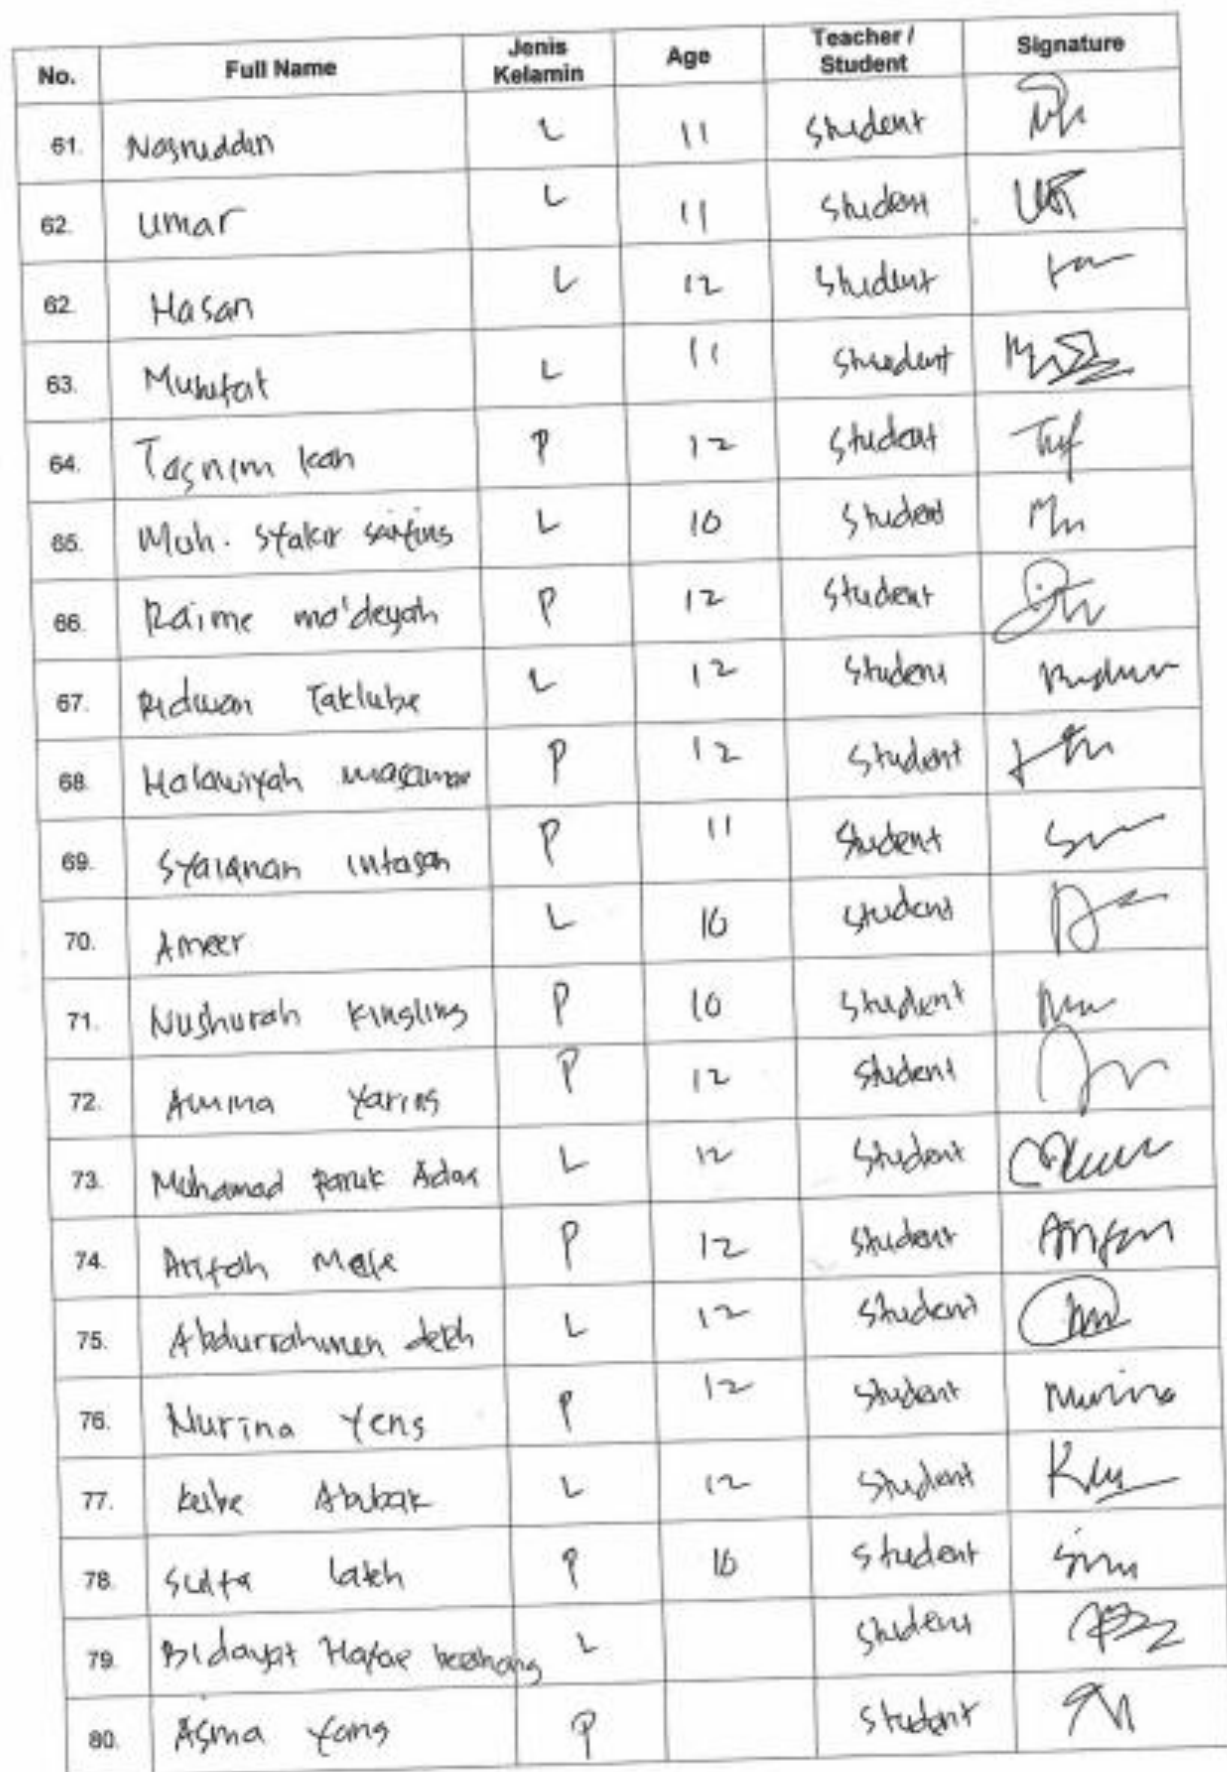 No. Full Name Jenis Kelamin Age Teacher / Student Signature
61. Nasruddin L 11 Student
62. Umar L 11 Student
62. Hasan L 12 Student
63. L 11 Student
64. Tasnim kah P 12 Student
65. Muh. Syakir L 10 Student
66. Raime mo'deyah P 12 Student
67. Ridwan Taklube L 12 Student
68. Halawiyah P 12 Student
69. intasan P 11 Student
70. Ameer L 10 Student
71. Nushurah kingling P 10 Student
72. Amina Yaring P 12 Student
73. Muhamad Paruk Adae L 12 Student
74. Arifah P 12 Student
75. Abdurrahman L 12 Student
76. Nurina Yeng P 12 Student Nurina
77. L 12 Student
78. lateh P 10 Student
79. Bidayat L Student
80. Asma Yang P Student